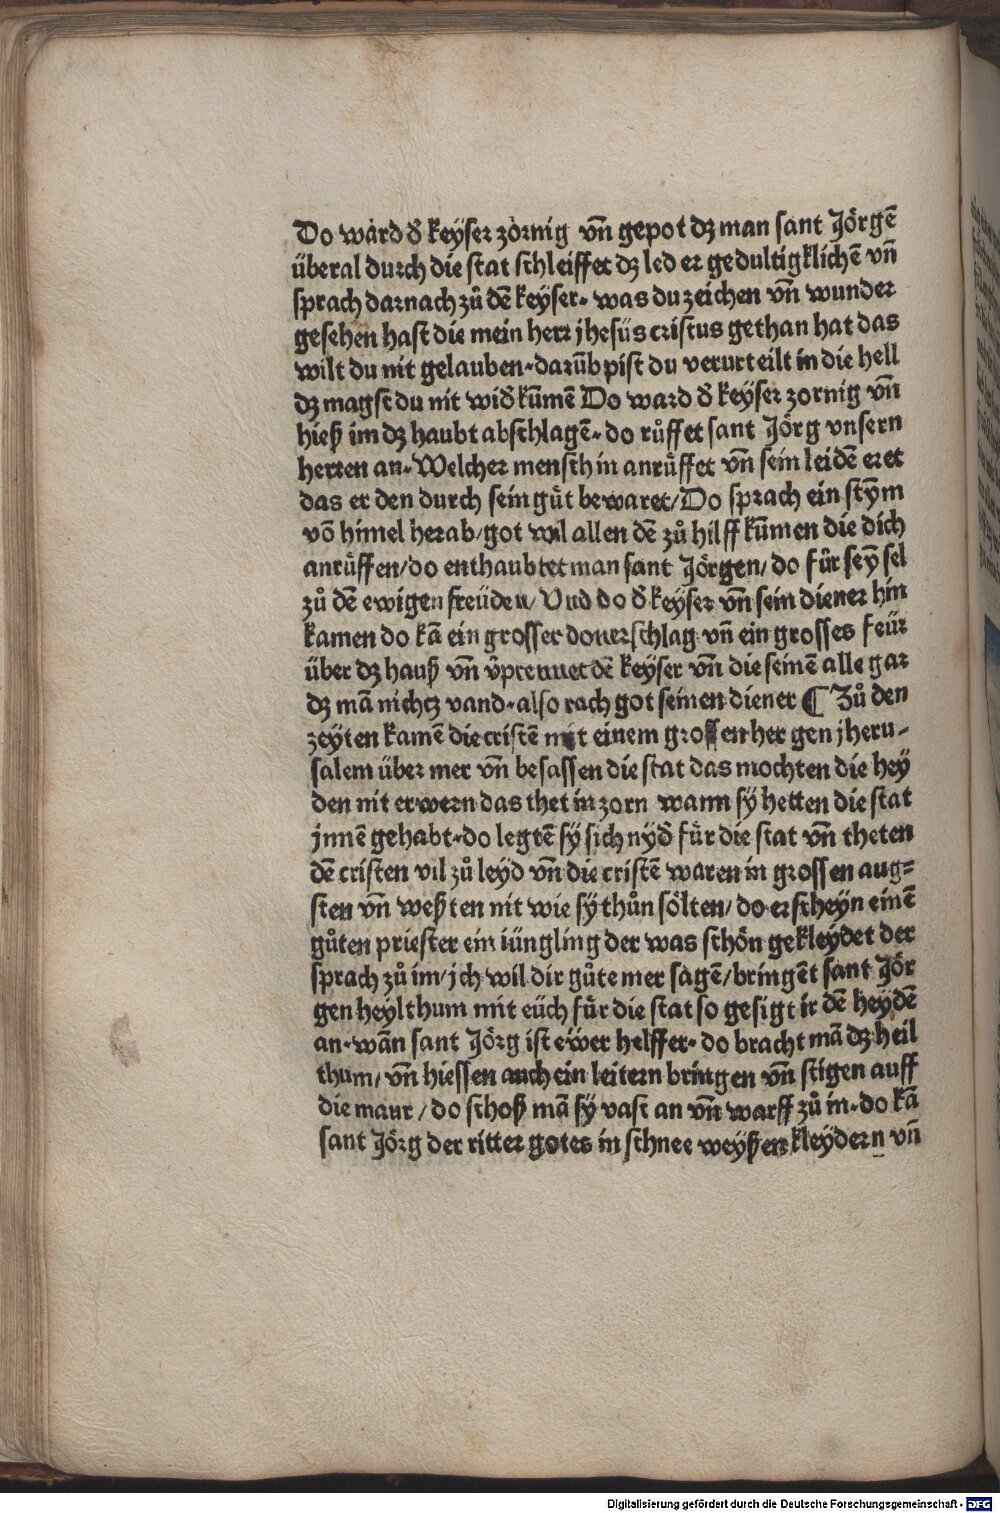 Do ward ð keÿser zornig vn̄ gepot dz man sant Jörgē
überal durch die stat schleiffet dz led er gedultigklichē vn̄
sprach darnach zů dē keÿser· was du zeichen vn̄ wunder
gesehen hast die mein herr jhesus cristus gethan hat das
wilt du nit gelauben·darūb pist du verurteilt in die hell
dz magst du nit wið kūmē Do ward ð keÿser zornig vn̄
hieß im dz haubt abschlagē·do růffet sant Jörg vnsern
herren an·Welcher mensch in anrůffet vn̄ sein leidē eret
das er den durch sein gůt bewaret/Do sprach ein stÿm
vō himel herab/got wil allen dē zů hilff kūmen die dich
anrůffen/do enthaubtet man sant Jörgen/do fůr seÿ sel
zů dē ewigen freüden/Vnd do ð keÿser vn̄ sein diener hin
kamen do kā ein grosser donerschlag vn̄ ein grosses feür
über dz hauß vn̄ v̄prennet dē keÿser vn̄ die seinē alle gar
dz mā nichtz vand·also rach got seinen diener ¶ Zů den
zeÿten kamē die cristē mit einem grossen her gen jheru-
salem über mer vn̄ besassen die stat das mochten die heÿ
den nit erwern das thet in zorn wann sÿ hetten die stat
jnnē gehabt·do legtē sÿ sich nÿð für die stat vn̄ theten
dē cristen vil zů leyd vn̄ die cristē waren in grossen aug=
sten vn̄ weßten nit wie sÿ thůn sölten/do erscheyn einē
gůten priester ein iüngling der was schön gekleydet der
sprach zů im/jch wil dir gůte mer sagē/bringēt sant Jör
gen heylthum mit eüch für die stat so gesigt ir dē heÿdē
an·wān sant Jörg ist ewer helffer·do bracht mā dz heil
thum/vn̄ hiessen auch ein leitern bringen vn̄ stigen auff
die maur/do schoß mā sÿ vast an vn̄ warff zů in·do kā
sant Jörg der ritter gotes in schnee weyßen kleydern vn̄
Digitalisierung gefördert durch die Deutsche Forschungsgemeinschaft - DFG